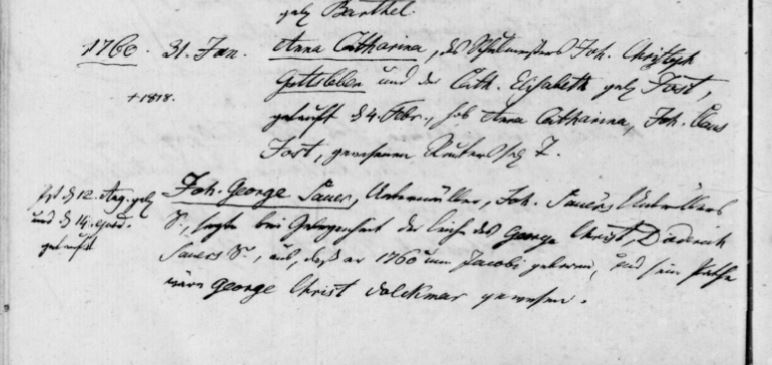 geb Barthel.
1760. 31. Jan. Anna Catharina, des Schulmeisters Joh. Christoph
Gottsleben und der Cath. Elisabeth geb Fost,
+ 1818.
getauft d 4. Febr., hob Anna Catharina, Joh.
Fost, gewesenen T.
ist d 12. Aug. geb
und d 14.
getauft
Joh. George Sauer, Untermüller, Joh. Sauers Untermüllers
S., sagte bei Gelegenheit der Leiche des George Christ, Dietrich
Sauers S., aus, daß er 1760 um Jacobi geboren, und sein Pathe
wäre George Christ Volckmar gewesen.